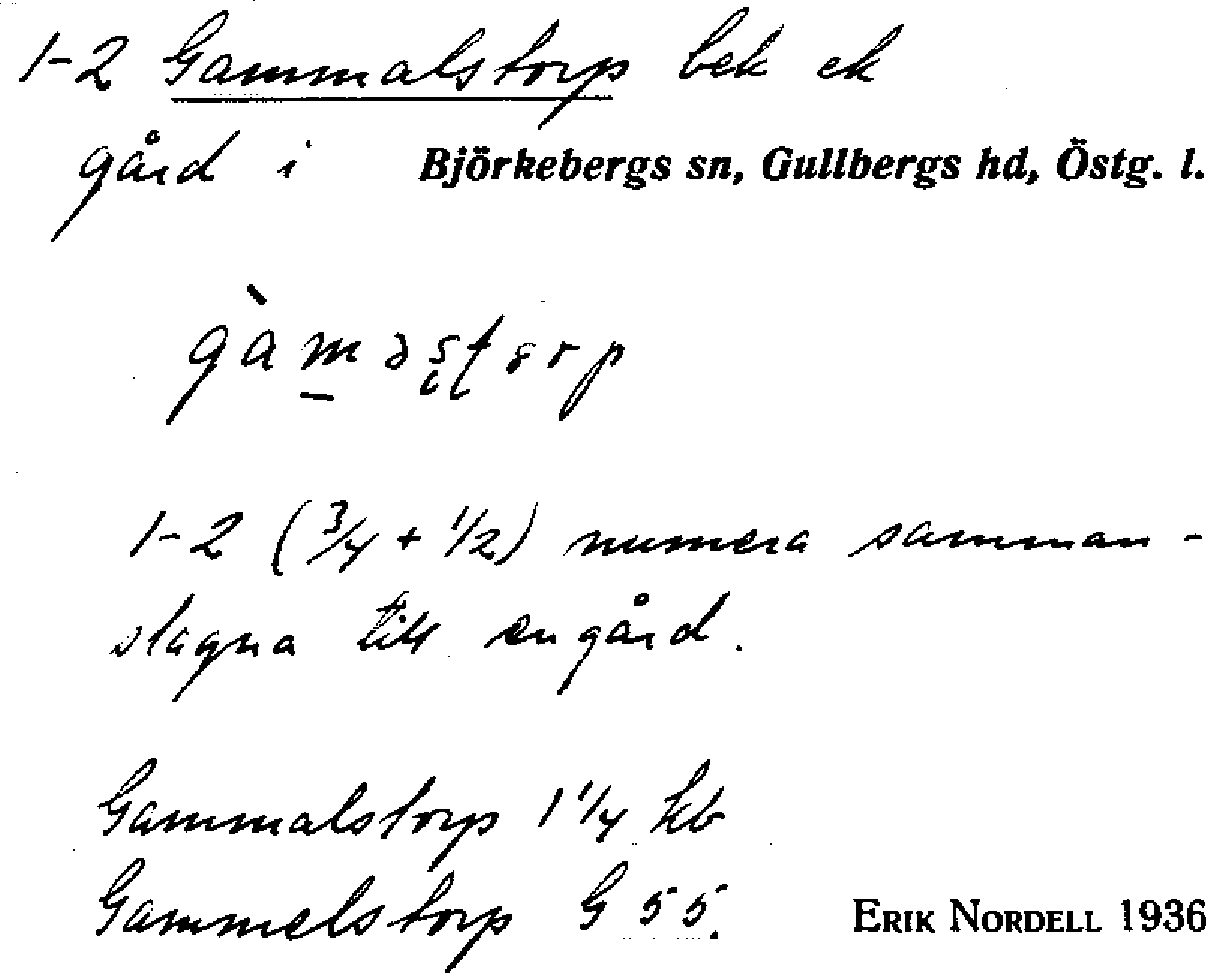 1-2 Gammalstorp bek ek
gård i Björkebergs sn, Gullbergs hd, Östg. l.
1-2 (3/4 + 1/2) numera samman-
slagna till en gård.
Gammalstorp 1 1/4 kb
Gammelstorp G 55.
ERIK NORDELL 1936